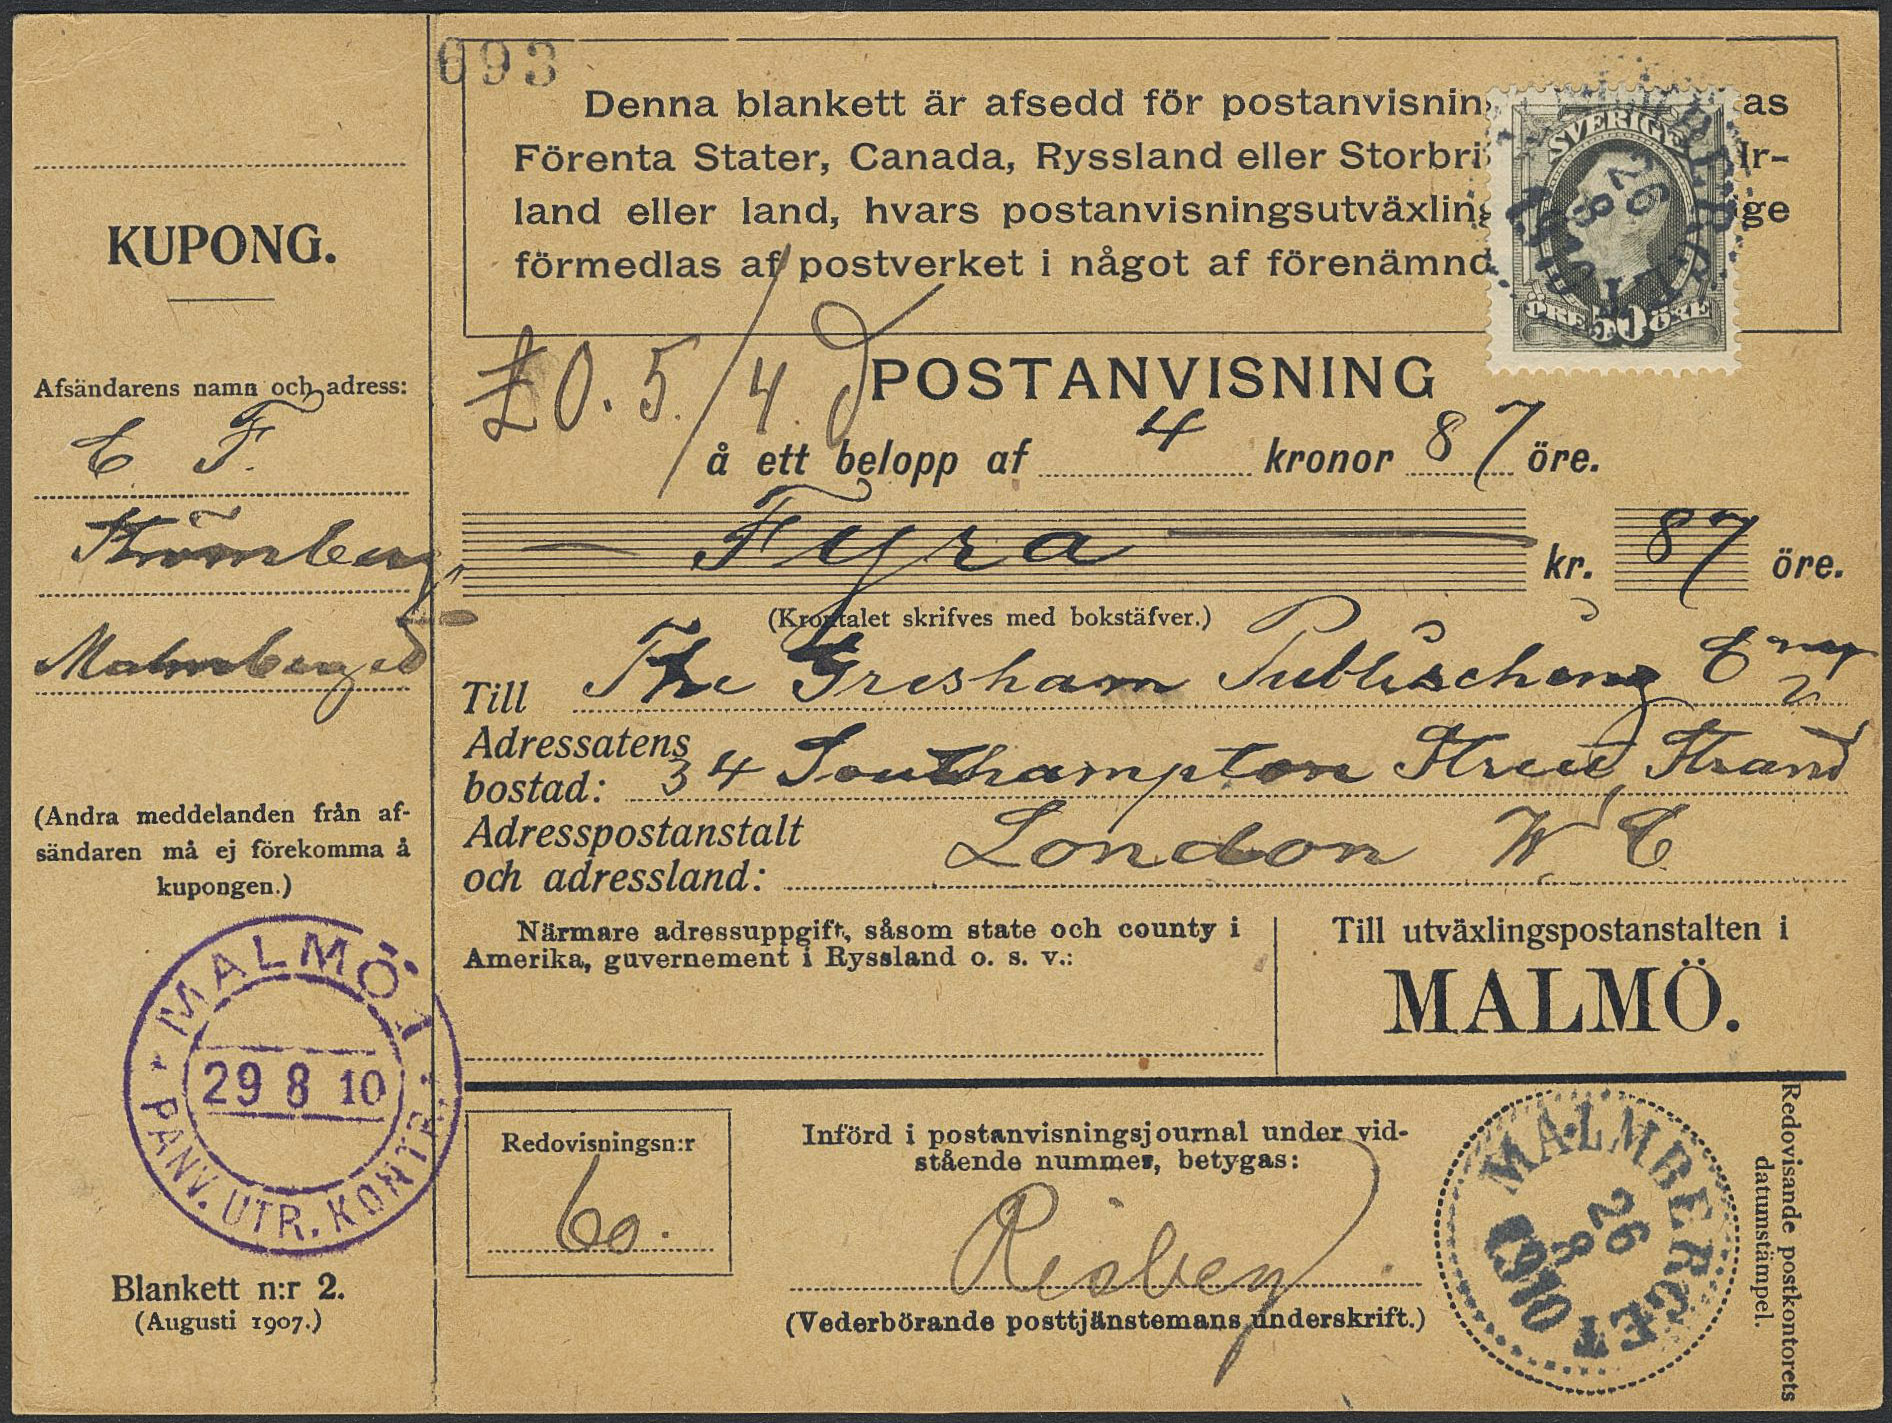 693
KUPONG.
Afsändarens namn och adress:
C F.
Strömberg
Malmberged
(Andra meddelanden från af-
sändaren må ej förekomma å
kupongen.)
MALMÖ 1
29 8 10
PANV. UTR. KONT
Blankett n:r 2.
(Augusti 1907.)
Denna blankett är afsedd för postanvisnin as
Förenta Stater, Canada, Ryssland eller Storbri Ir-
land eller land, hvars postanvisningsutväxling ige
förmedlas af postverket i något af förenämnd
SVERIGE
26
8
ÖRE 50 ÖRE
£0.5/4 d
POSTANVISNING
å ett belopp af 4 kronor 87 öre.
Fyra kr. 87 öre.
(Krontalet skrifves med bokstäfver.)
Till The Gresham Publisching Cmpy
Adressatens
bostad: 34 Southampton Street Strand
Adresspostanstalt
och adressland: London W C
Närmare adressuppgift, såsom state och county i
Amerika, guvernement i Ryssland o. s. v.:
Till utväxlingspostanstalten i
MALMÖ.
Redovisningsn:r
60.
Införd i postanvisningsjournal under vid-
stående nummer, betygas:
(Vederbörande posttjänstemans underskrift.)
MALMBERGET
26
8
1910
Redovisande postkontorets
datumstämpel.